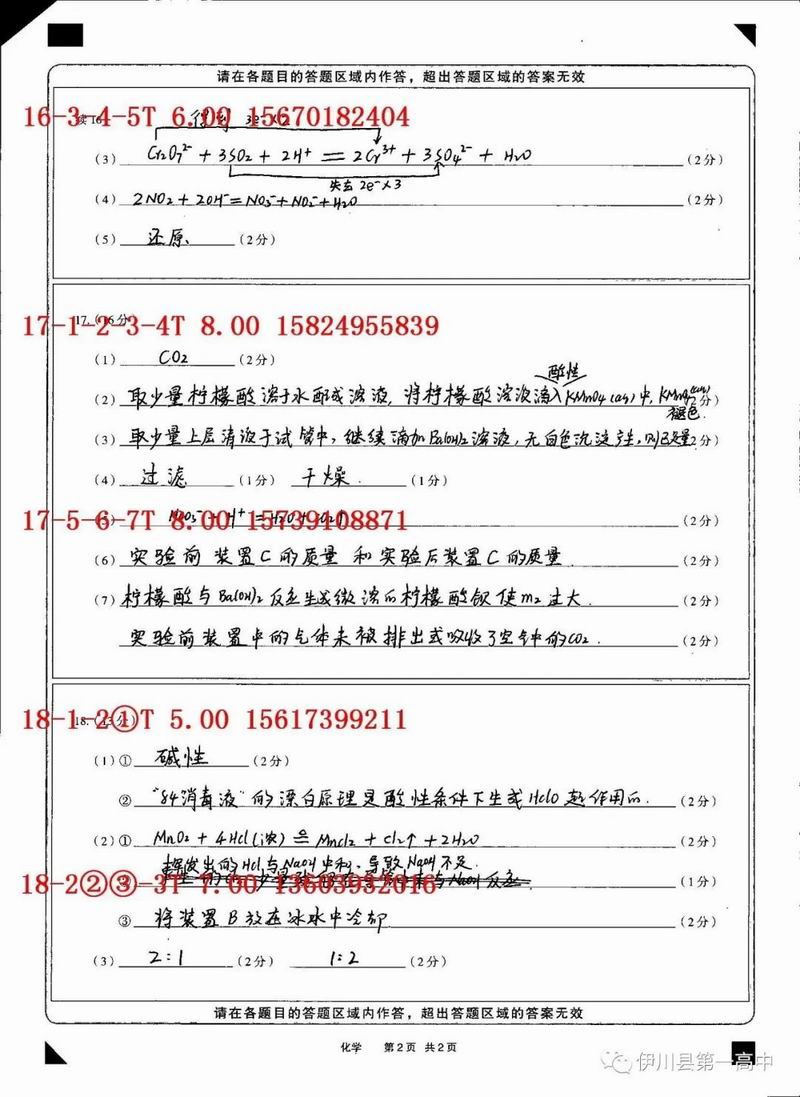 请在各题目的答题区域内作答，超出答题区域的答案无效
16-3-4-5T 6.00 15670182404
续16
得到 3e⁻×2
(3) Cr₂O₇²⁻ + 3SO₂ + 2H⁺ == 2Cr³⁺ + 3SO₄²⁻ + H₂O (2分)
失去 2e⁻×3
(4) 2NO₂ + 2OH⁻ = NO₃⁻ + NO₂⁻ + H₂O (2分)
(5) 还原 (2分)
17-1-2-3-4T 8.00 15824955839
17. (16分)
(1) CO₂ (2分)
酸性
(2) 取少量柠檬酸溶于水配成溶液，将柠檬酸溶液滴入KMnO₄(aq)中，KMnO₄(aq) (2分)
褪色.
(3) 取少量上层清液于试管中，继续滴加Ba(OH)₂溶液，无白色沉淀产生，则已足量 (2分)
(4) 过滤 (1分) 干燥. (1分)
17-5-6-7T 8.00 15739108871
H⁺ = H₂O + CO₂↑ (2分)
(6) 实验前装置C的质量和实验后装置C的质量 (2分)
(7) 柠檬酸与Ba(OH)₂反应生成微溶的柠檬酸钡使m₂过大. (2分)
实验前装置中的气体未被排出或吸收了空气中的CO₂. (2分)
18-1-2①T 5.00 15617399211
18. (13分)
(1) ① 碱性 (2分)
② "84消毒液"的漂白原理是酸性条件下生成HClO起作用的. (2分)
(2) ① MnO₂ + 4HCl(浓) ≜ MnCl₂ + Cl₂↑ + 2H₂O (2分)
挥发出的HCl与NaOH中和，导致NaOH不足.
18-2②③-3T 7.00 13603932016
② (1分)
③ 将装置B放在冰水中冷却 (2分)
(3) 2:1 (2分) 1:2 (2分)
请在各题目的答题区域内作答，超出答题区域的答案无效
化学 第2页 共2页
伊川县第一高中